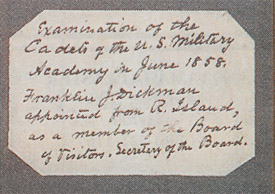 Examination of the
Cadets of the U.S. Military
Academy in June 1858.
Franklin J. Dickman
appointed from R. Island,
as a member of the Board
of Visitors. Secretary of the Board.